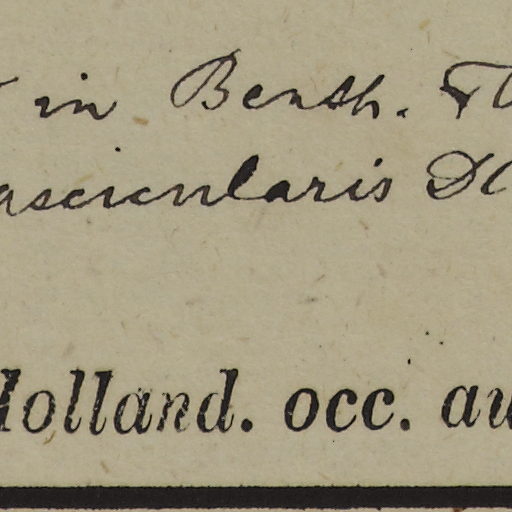 in Benth. Fl
ascicularis DC
Holland. occ. au